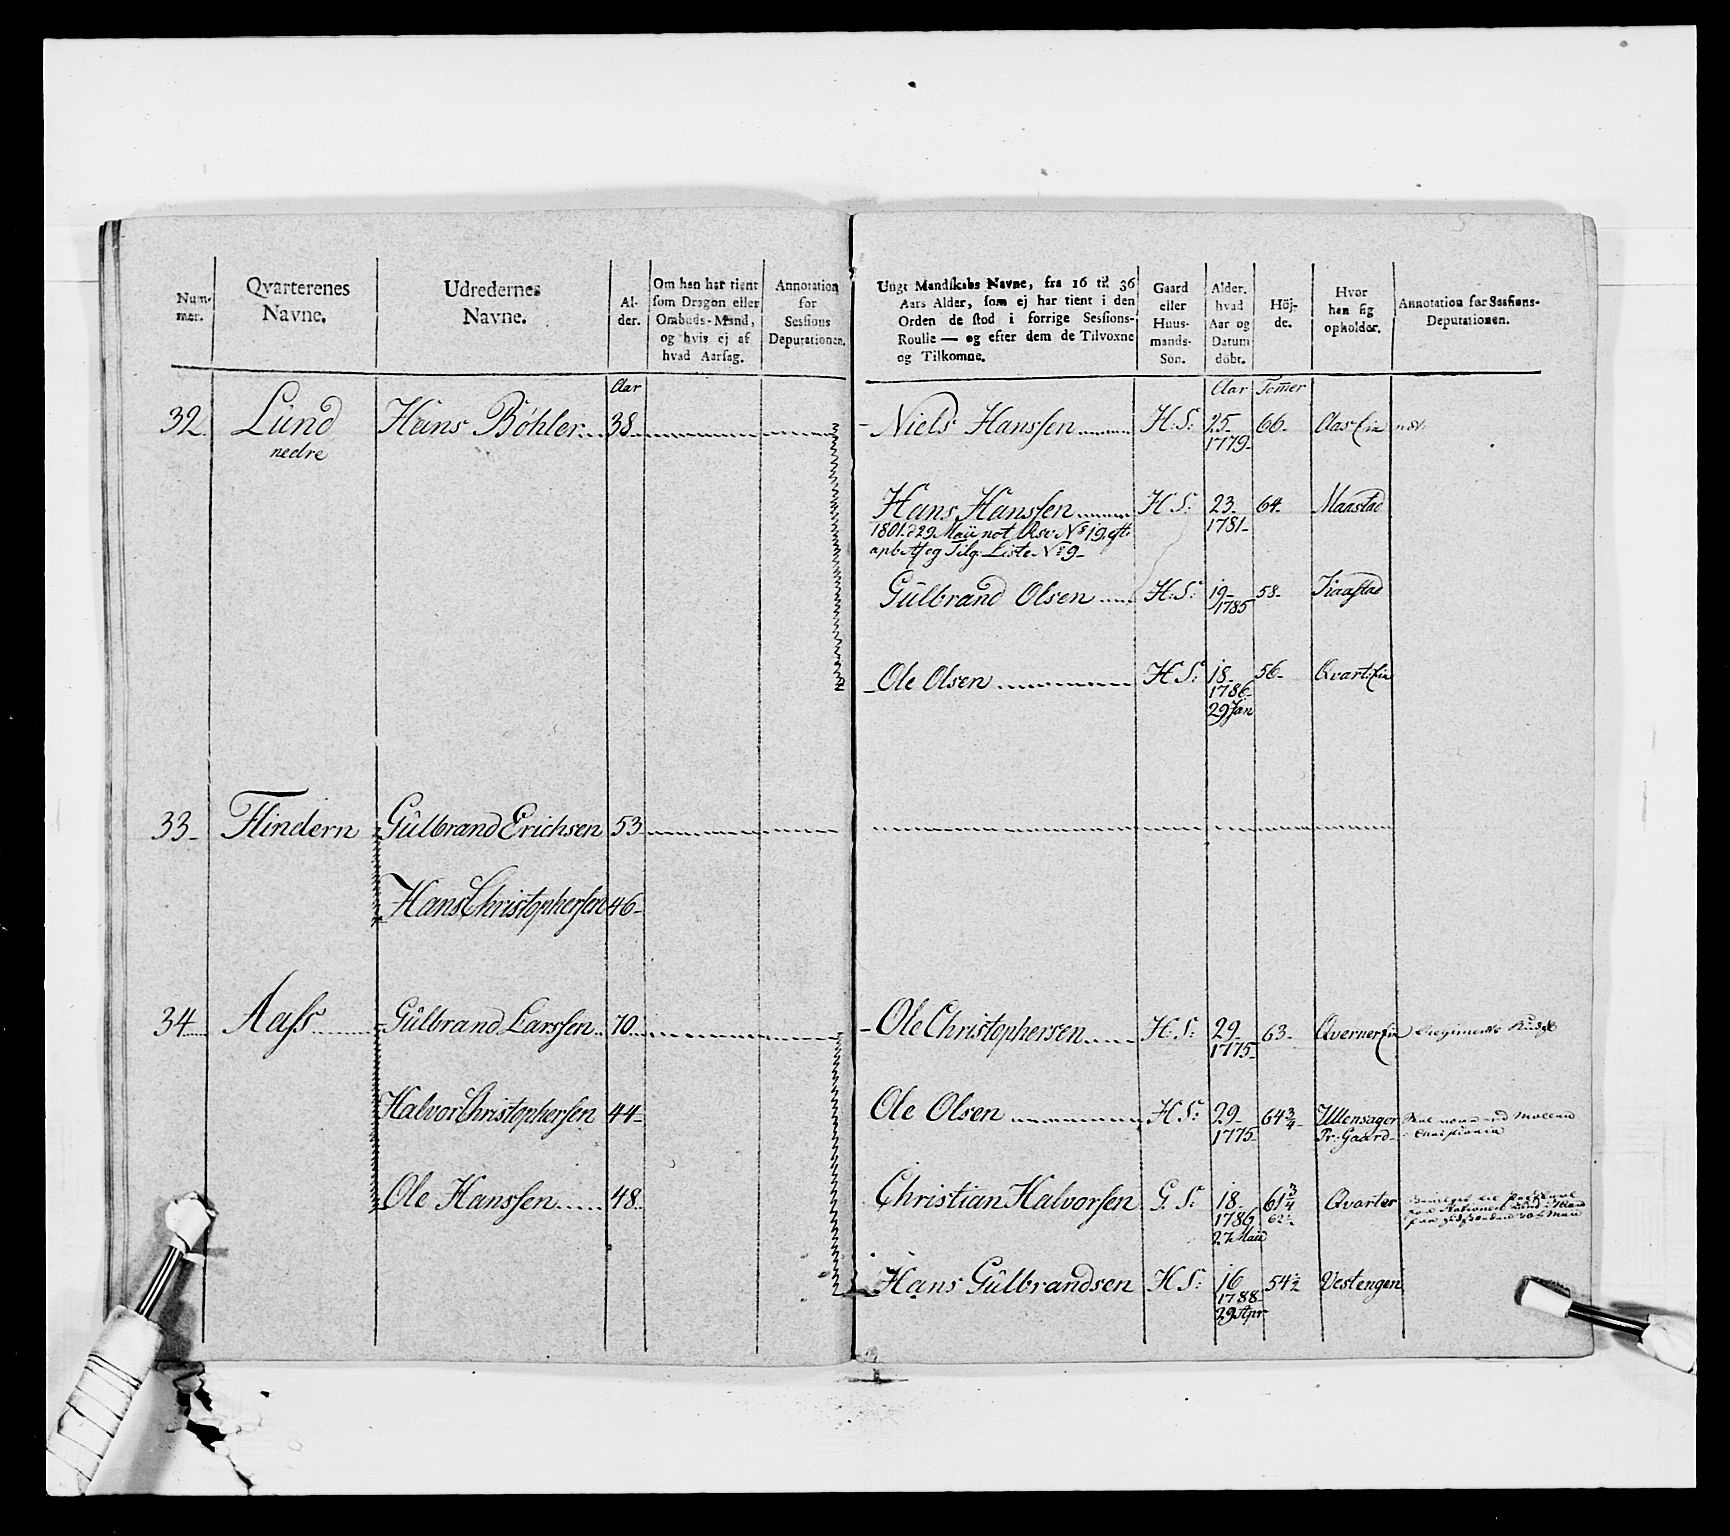 Num-
mer.
Qvarterenes
Navne.
Udredernes
Navne.
Al-
der.
Om han har tient
som Dragon eller
Ombuds-Mand,
og hvis ej af
hvad Aarsag.
Annotation
for
Sessions
Deputationen.
Ungt Mandskabs Navne, fra 16 til 36
Aars Alder, som ej har tient i den
Orden de stod i forrige Sessions-
Roulle — og efter dem de Tilvoxne
og Tilkomne.
Gaard
eller
Huus-
mands-
Son.
Alder,
hvad
Aar og
Datum
döbt.
Höj-
de.
Hvor
han sig
opholder.
Annotation for Sessions-
Deputationen.
Aar
Aar Tomer
32. Lund Hans Böhler 38
nedre
Niels Hanssen H: S: 25 66
1779
Hans Hanssen H S: 23 64 Maastad
1781
1801 d 29 Maii not Res: No 19. eft:
Liste No 9
Gulbrand Olsen H: S: 19 58 Kraastad
1785
Ole Olsen H S: 18 56
1786
29 Jan
33 Flindern Gulbrand Erichsen 53
Hans Christophersen 46
34 Aass Gulbrand Larssen 70
Ole Christophersen H: S: 29 63
1775
Halvor Christophersen 44
Ole Olsen H S: 29 64 3/4 Ullensager
1775 Pr: Gaard
Christiania
Ole Hanssen 48
Christian Halvorsen G. S: 18 61 3/4 Qvarter
1786
Hans Gulbrandsen H S: 16 54 1/2 Vestengen
1788
29 Apr